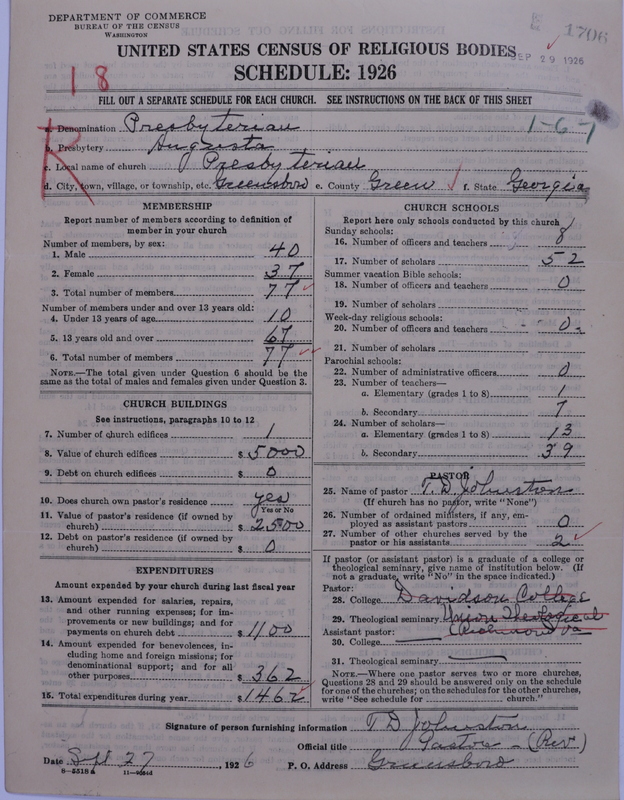 DEPARTMENT OF COMMERCE
BUREAU OF THE CENSUS
WASHINGTON
1706
SEP 29 1926
UNITED STATES CENSUS OF RELIGIOUS BODIES
SCHEDULE: 1926
18
FILL OUT A SEPARATE SCHEDULE FOR EACH CHURCH. SEE INSTRUCTIONS ON THE BACK OF THIS SHEET
R
1-6-1
a. Denomination Presbyterian
b. Presbytery Augusta
c. Local name of church Presbyterian
d. City, town, village, or township, etc. Greensboro e. County Green f. State Georgia
MEMBERSHIP
Report number of members according to definition of
member in your church
Number of members, by sex:
1. Male 40
2. Female 37
3. Total number of members 77
Number of members under and over 13 years old:
4. Under 13 years of age 10
5. 13 years old and over 67
6. Total number of members 77
NOTE.—The total given under Question 6 should be the
same as the total of males and females given under Question 3.
CHURCH BUILDINGS
See instructions, paragraphs 10 to 12
7. Number of church edifices 1
8. Value of church edifices $5000
9. Debt on church edifices $0
10. Does church own pastor's residence yes
Yes or No
11. Value of pastor's residence (if owned by
church) $2500
12. Debt on pastor's residence (if owned by
church) $0
EXPENDITURES
Amount expended by your church during last fiscal year
13. Amount expended for salaries, repairs,
and other running expenses; for im-
provements or new buildings; and for
payments on church debt $1100
14. Amount expended for benevolences, in-
cluding home and foreign missions; for
denominational support; and for all
other purposes $362
15. Total expenditures during year $1462
CHURCH SCHOOLS
Report here only schools conducted by this church
Sunday schools:
16. Number of officers and teachers 8
17. Number of scholars 52
Summer vacation Bible schools:
18. Number of officers and teachers 0
19. Number of scholars
Week-day religious schools:
20. Number of officers and teachers 0
21. Number of scholars
Parochial schools:
22. Number of administrative officers 0
23. Number of teachers—
a. Elementary (grades 1 to 8) 1
b. Secondary 7
24. Number of scholars—
a. Elementary (grades 1 to 8) 13
b. Secondary 39
PASTOR
25. Name of pastor T. D. Johnston
(If church has no pastor, write "None")
26. Number of ordained ministers, if any, em-
ployed as assistant pastors 0
27. Number of other churches served by the
pastor or his assistants 2
If pastor (or assistant pastor) is a graduate of a college or
theological seminary, give name of institution below. (If
not a graduate, write "No" in the space indicated.)
Pastor:
28. College Davidson College
29. Theological seminary Union Theological
Assistant pastor: Richmond Va
30. College
31. Theological seminary
NOTE.—Where one pastor serves two or more churches,
Questions 28 and 29 should be answered only on the schedule
for one of the churches; on the schedules for the other churches,
write "See schedule for church."
Signature of person furnishing information T D Johnston
Official title Pastor - (Rev)
Date Sept 27, 1926 P. O. Address Greensboro
8-5518a